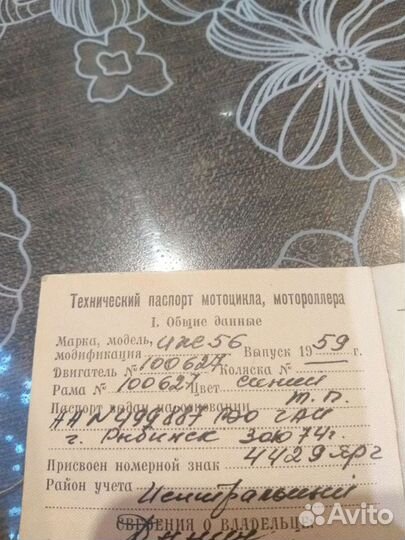 Технический паспорт мотоцикла, мотороллера
I. Общие данные
Марка, модель, ИЖ 56
модификация Выпуск 1959 г.
Двигатель № 100627 Коляска №
Рама № 100627 Цвет синий
Паспорт выдан на основании т.п.
АА № 499887 РЭО ГАИ
г. Рыбинск 30 07 74г.
Присвоен номерной знак 4429 ЯРГ
Район учета Центральный
СВЕДЕНИЯ О ВЛАДЕЛЬЦЕ
Avito